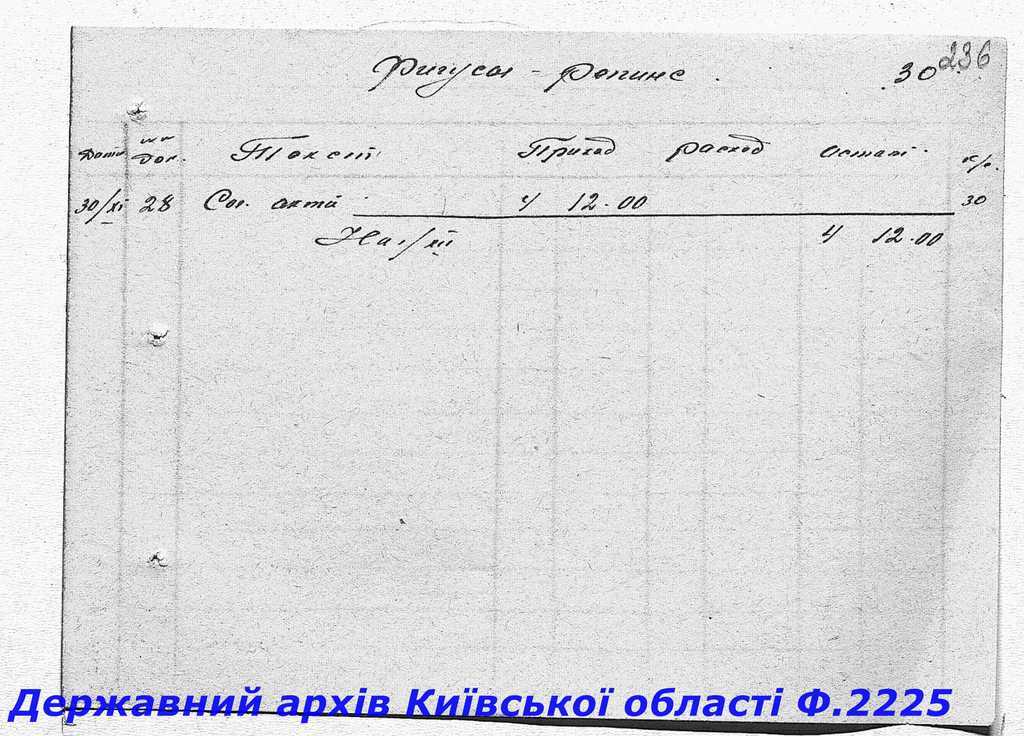 236
Фигусы - репинс. 30
Дата №№ Док. Текст Приход расход Остат. к/с.
30/XI 28 Сог. акта 4 12.00 30
На 1/XII 4 12.00
Державний архів Київської області Ф.2225